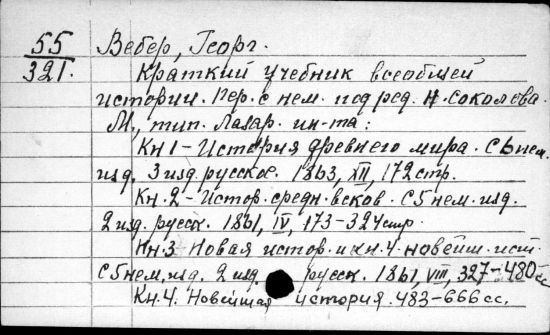 55 Вебер, Георг.
321. Краткий учебник всеобщей
истории. Пер. с нем. под ред. Н. Соколова.
М., тип. Лазар. ин-та:
Кн 1 - История древнего мира. С 6 нем.
изд. 3 изд. русское. 1863, XII, 172 стр.
Кн. 2 - Истор. средн. веков. С 5 нем. изд.
2 изд. русск. 1861, IV, 173-324 стр.
Кн. 3 Новая истор. и кн. 4. новейш. ист.
С 5 нем. изд. 2 изд. русск. 1861, VIII, 327-480 сс
Кн. 4. Новейшая история. 483-666 сс.